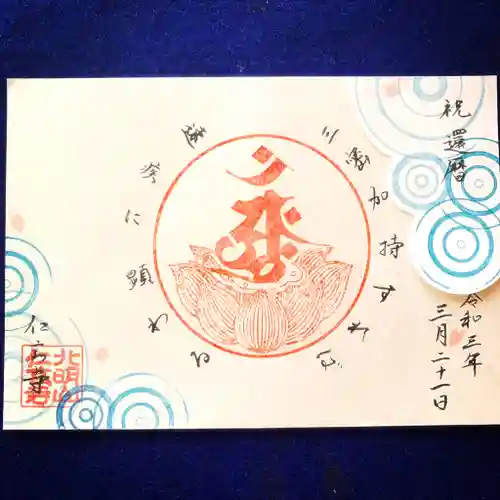 祝 還暦
令和三年
三月二十一日
三密加持すれば
速疾に顕わる
北明山